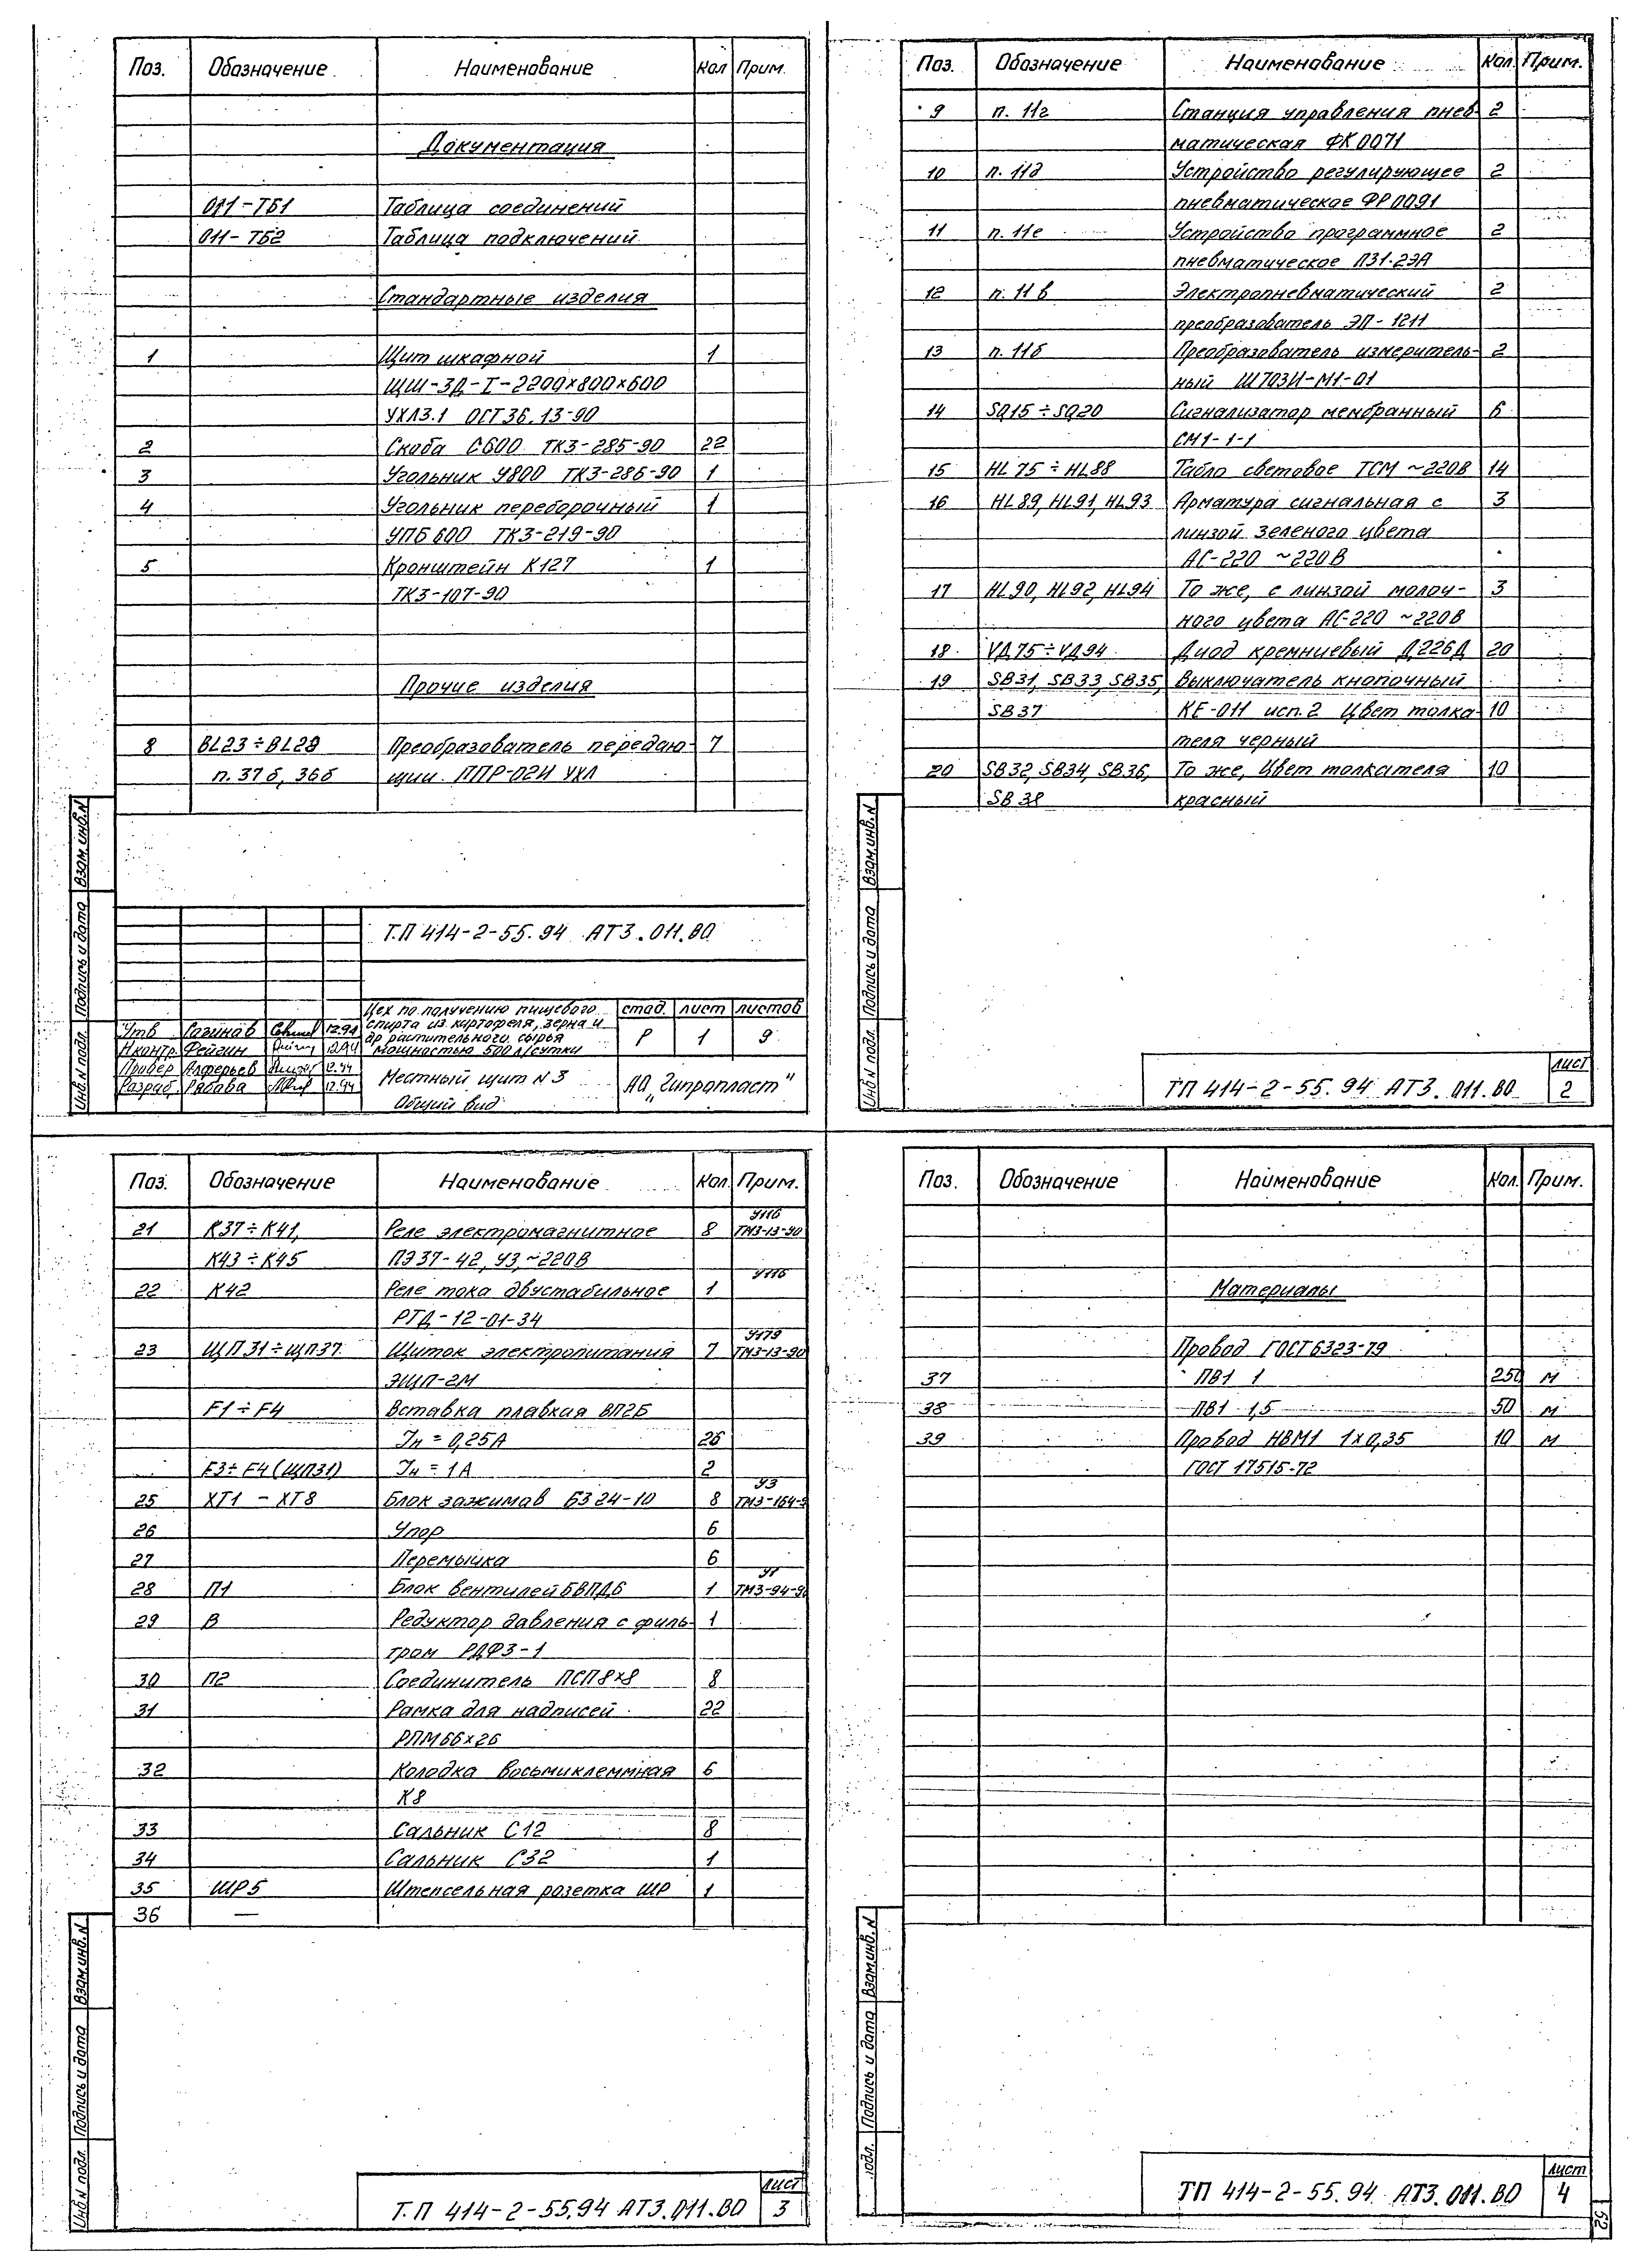 Поз. Обозначение Наименование Кол Прим.
Документация
011-ТБ1 Таблица соединений
011-ТБ2 Таблица подключений
Стандартные изделия
1 Щит шкафной 1
ЩШ-ЗД-I-2200×800×600
УХЛ3.1 ОСТ 36.13-90
2 Скоба С600 ТК3-285-90 22
3 Угольник У800 ТК3-286-90 1
4 Угольник переборочный 1
УПБ 600 ТК3-219-90
5 Кронштейн К127 1
ТК3-107-90
Прочие изделия
8 BL23÷BL29 Преобразователь передаю- 7
п. 37б, 36б щии ППР-02И УХЛ
Т.П 414-2-55.94 АТ3.011.ВО
Цех по получению пищевого
спирта из картофеля, зерна и
др растительного сырья
мощностью 500 л/сутки
стад. лист листов
Р 1 9
Утв 12.94
Н.контр. Фейгин 12.94
Провер Алферьев 12.94
Разраб. Рябова 12.94
Местный щит N3
Общий вид
АО „Гипропласт"
Инв.N подл. Подпись и дата Взам.инв.N
Поз. Обозначение Наименование Кол. Прим.
9 п. 11г Станция управления пнев- 2
матическая ФК 0071
10 п. 11д Устройство регулирующее 2
пневматическое ФР 0091
11 п. 11е Устройство программное 2
пневматическое П31-2ЭА
12 п. 11в Электропневматический 2
преобразователь ЭП-1211
13 п. 11б Преобразователь измеритель- 2
ный Ш703И-М1-01
14 SQ15÷SQ20 Сигнализатор мембранный 6
СМ1-1-1
15 HL75÷HL88 Табло световое ТСМ ~220В 14
16 HL89, HL91, HL93 Арматура сигнальная с 3
линзой зеленого цвета
АС-220 ~220В
17 HL90, HL92, HL94 То же, с линзой молоч- 3
ного цвета АС-220 ~220В
18 VД75÷VД94 Диод кремниевый Д226Д 20
19 SB31, SB33, SB35, Выключатель кнопочный
SB37 КЕ-011 исп.2 Цвет толка- 10
теля черный
20 SB32, SB34, SB36, То же, Цвет толкателя 10
SB38 красный
Инв.N подл. Подпись и дата Взам.инв.N
ТП 414-2-55.94 АТ3.011.ВО
лист
2
Поз. Обозначение Наименование Кол. Прим.
У116
21 К37÷К41, Реле электромагнитное 8 ТМ3-13-90
К43÷К45 ПЭ37-42, У3, ~220В
У116
22 К42 Реле тока двустабильное 1
РТД-12-01-34
У179
23 ЩП31÷ЩП37 Щиток электропитания 7 ТМ3-13-90
ЭЩП-2М
F1÷F4 Вставка плавкая ВП2Б
Iн = 0,25А 26
F3÷F4 (ЩП31) Iн = 1А 2
У3
25 ХТ1 - ХТ8 Блок зажимов БЗ 24-10 8 ТМ3-164-9
26 Упор 6
27 Перемычка 6
У1
28 П1 Блок вентилей БВПД6 1 ТМ3-94-90
29 В Редуктор давления с филь- 1
тром РДФ3-1
30 П2 Соединитель ПСП 8×8 8
31 Рамка для надписей 22
РПМ 66×26
32 Колодка восьмиклеммная 6
К8
33 Сальник С12 8
34 Сальник С32 1
35 ШР5 Штепсельная розетка ШР 1
36 —
Инв.N подл. Подпись и дата Взам.инв.N
Т.П 414-2-55.94 АТ3.011.ВО
лист
3
Поз. Обозначение Наименование Кол. Прим.
Материалы
Провод ГОСТ 6323-79
37 ПВ1 1 250 м
38 ПВ1 1,5 50 м
39 Провод НВМ1 1×0,35 10 м
ГОСТ 17515-72
подл. Подпись и дата Взам.инв.N
ТП 414-2-55.94 АТ3.011.ВО
лист
4
52